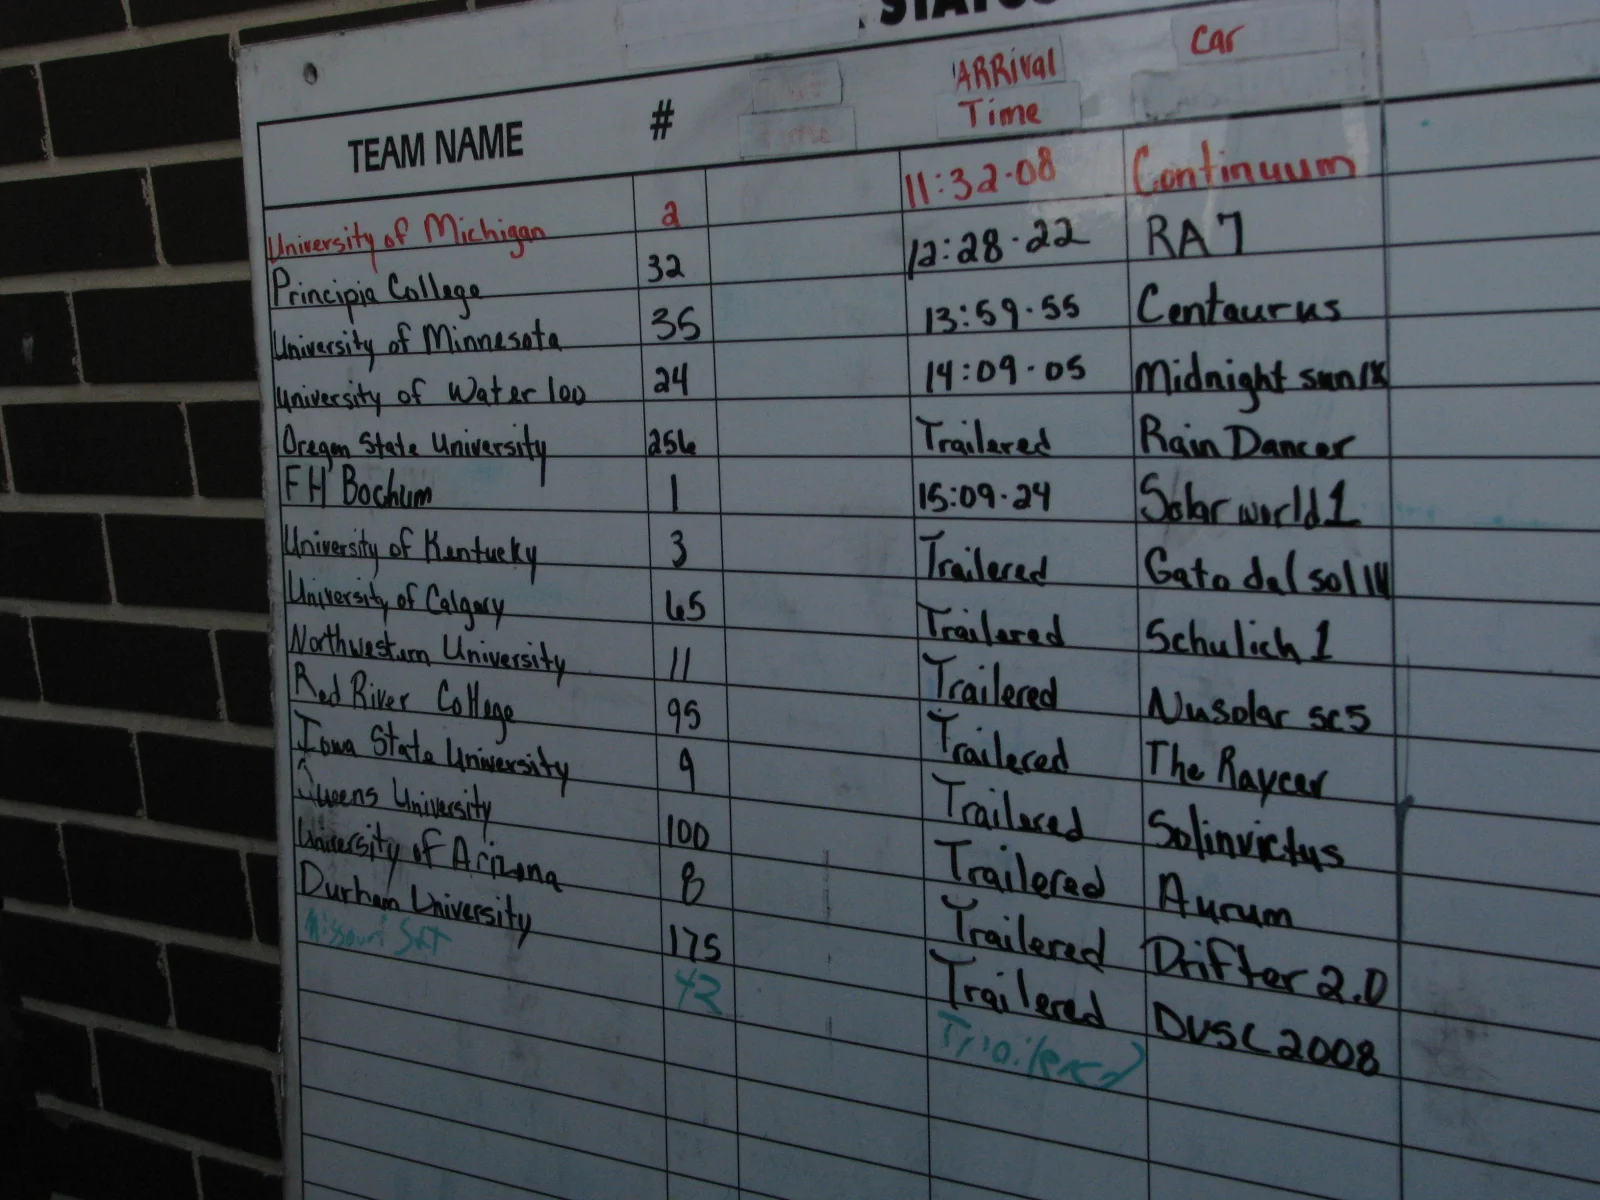 STATUS
TEAM NAME # ARRival Time Car
University of Michigan 2 11:32.08 Continuum
Principia College 32 12:28.22 RA7
University of Minnesota 35 13:59.55 Centaurus
University of Waterloo 24 14:09.05 Midnight sun IX
Oregon State University 256 Trailered Rain Dancer
FH Bochum 1 15:09.24 Solar world 1
University of Kentucky 3 Trailered Gato del sol IV
University of Calgary 65 Trailered Schulich 1
Northwestern University 11 Trailered Nusolar sc5
Red River College 95 Trailered The Raycer
Iowa State University 9 Trailered Solinvictus
Queens University 100 Trailered Aurum
University of Arizona 8 Trailered Drifter 2.0
Durham University 175 Trailered DUSC 2008
Missouri S&T 42 Trailered